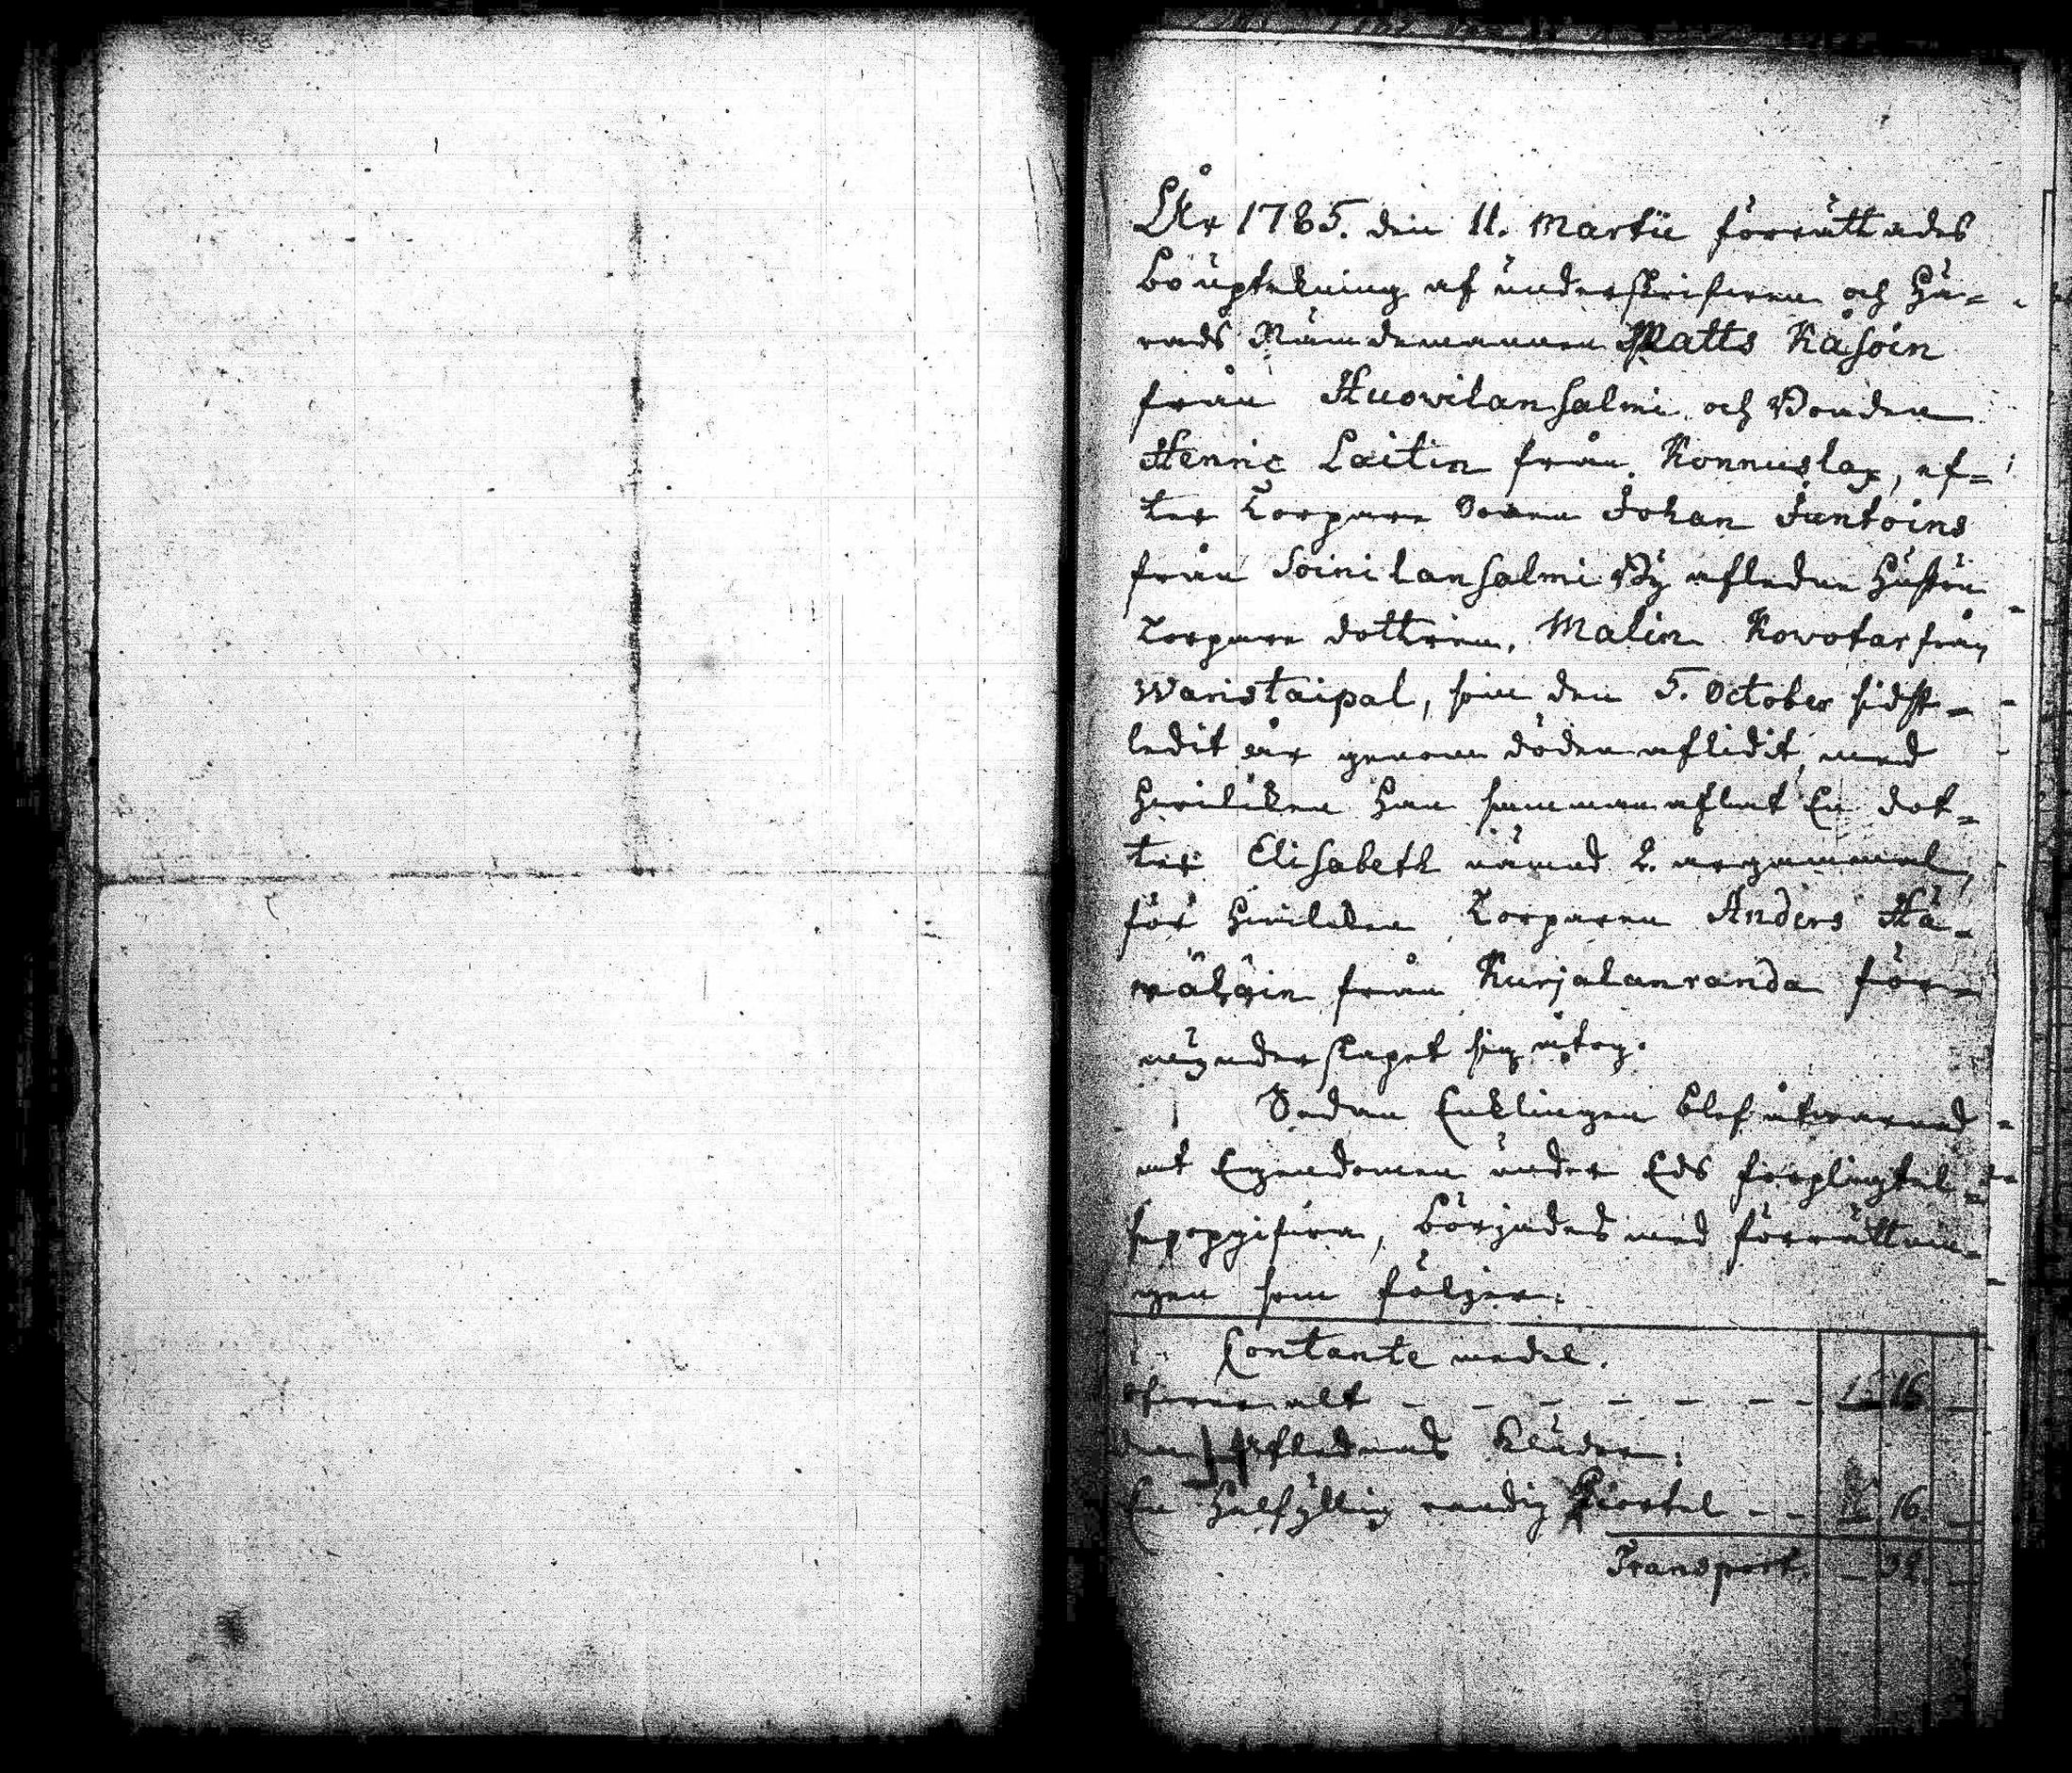 År 1785. den 11. Martii förrättades
bouptekning af underskrifvren och Hä=
rads Nämdemannen Matts Kåsoin
från Huovilansalmi och Bonden
Henric Laitin från Konnuslax, ef=
ter Torpare Sonen Johan Juntoins
från Soinilansalmi By afledne Hustru
Torpare dottren, Malin Kovotar från
Waristaipal, som den 5. October sidst=
ledit år genom döden aflidit, med
hvilken han sammanaflat En dot=
ter Elisabeth nämnd 2. år gammal,
för hvilken Torparen Anders Hä=
välqin från Kurjalanranda för=
mynderskapet sig åtog.
Sedan Enklingen blef åtvarnad
at Egendomen under Eds förpligtel=
se uppgifva, börjades med förrättnin=
gen som följer:
Contante medel.
öfver alt - - - - - - 16
den afledнas Kläder:
En Halfyllig randig Kiortel - - 16.
Transport. - 32. -